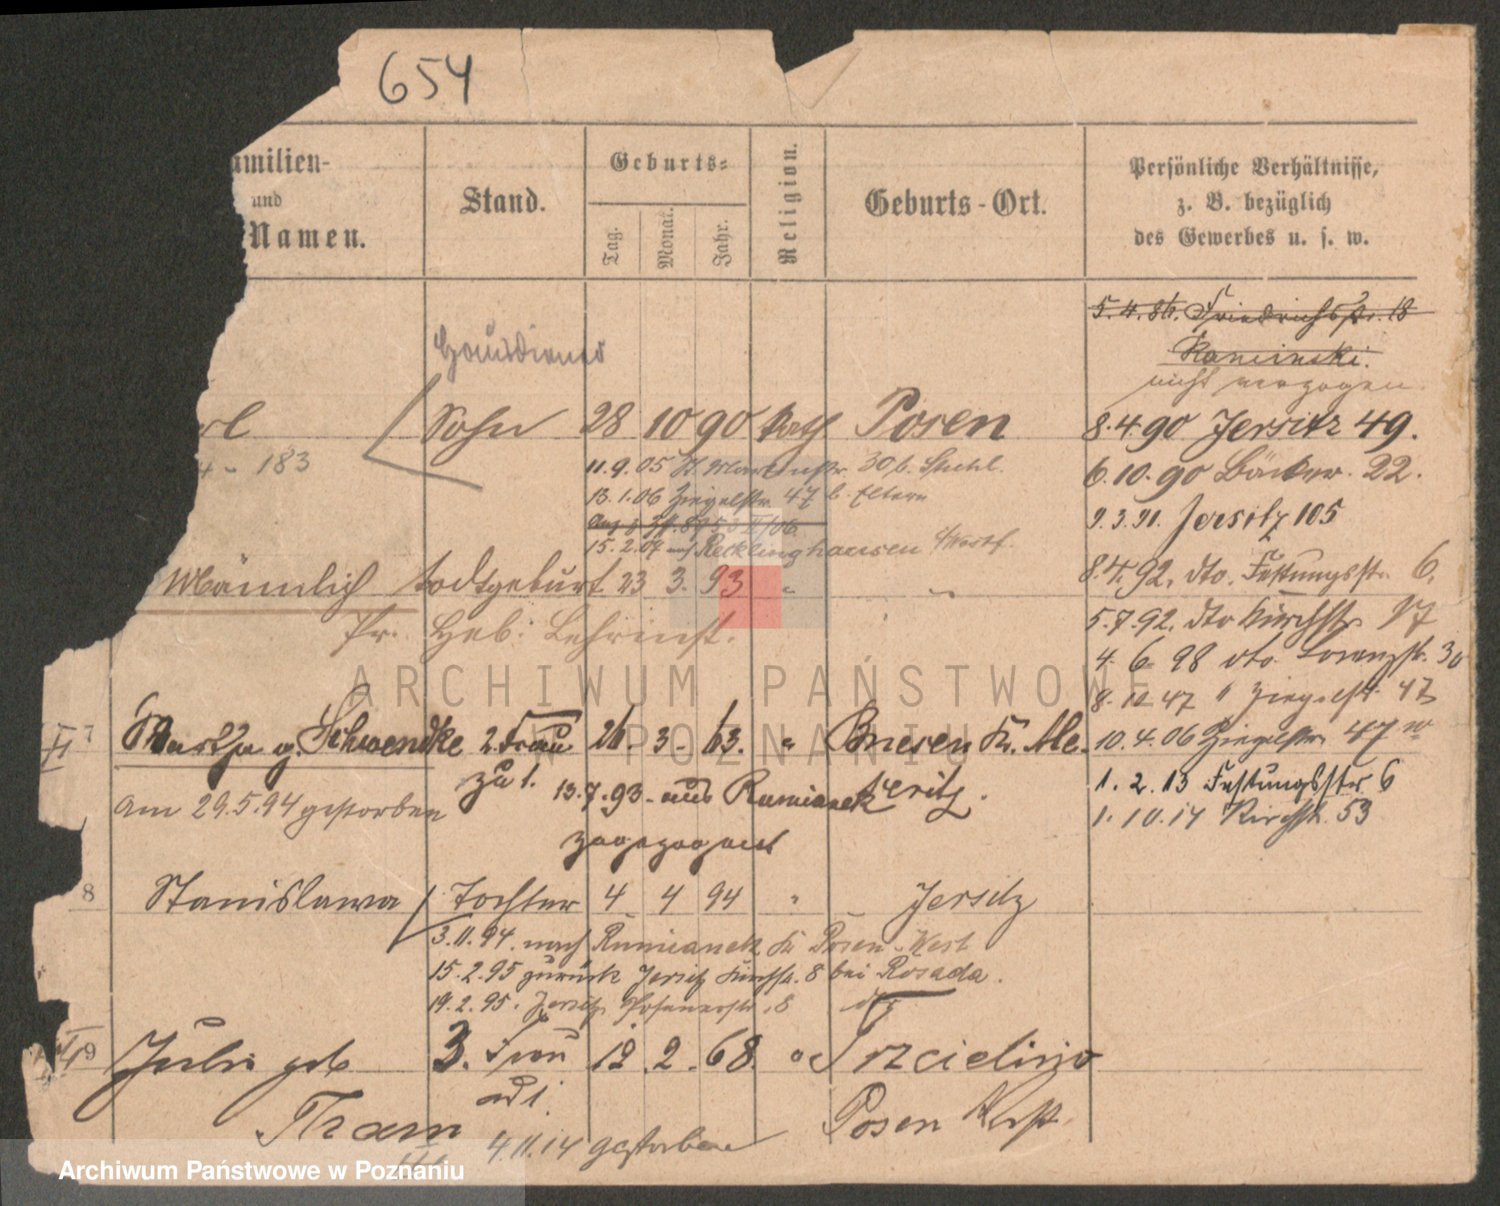 654
amilien-
und
Namen.
Stand.
Geburts-
Tag.
Monat.
Jahr.
Religion.
Geburts-Ort.
Persönliche Verhältnisse,
z. B. bezüglich
des Gewerbes u. s. w.
5.4.86. Friedrichstr. 18
Kaminski.
nicht verzogen.
rl Sohn 28 10 90 kath Posen
8.4.90 Jersitz 49.
183
11.9.05 St. Martinstr. 30 b. Stuhl.
6.10.90 Bäcker. 22.
13.1.06 Ziegelstr. 47 b. Eltern
9.3.91. Jersitz 105
15.2.07 nach Recklinghausen i/Westf.
Männlich todtgeburt 23 3. 93 " "
8.4.92. dto. Festungsstr. 6.
Pr. Heb: Lehrinst.
5.7.92. dto Kirchstr 17
4. 6. 98 dto. Lorenzstr. 30
8.10.47 " Ziegelstr 47
7 Martha g. Schwendke 2. Frau 26. 3. 63. " Bnesen Kr. Me-
10.4.06 Ziegelstr 47
zu 1. 13.7.93. aus Rumianek seritz.
1. 2. 13 Festungsstr 6
am 29.5.94 gestorben
1. 10. 14 Kirchstr. 53
zugezogen
8 Stanislawa Tochter 4 4 94 " Jersitz
3.11.94. nach Rumianek Kr Posen-West
15.2.95 zurück Jersitz Kirchstr. 8 bei Rosada.
19.2.95. Jersitz Posenerstr. 8 dto
9 Julie geb 3. Frau 12. 2. 68. " Trzcielino
Tham
zu 1.
Posen West
4.11.14 gestorben
ARCHIWUM PAŃSTWOWE
W POZNANIU
Archiwum Państwowe w Poznaniu